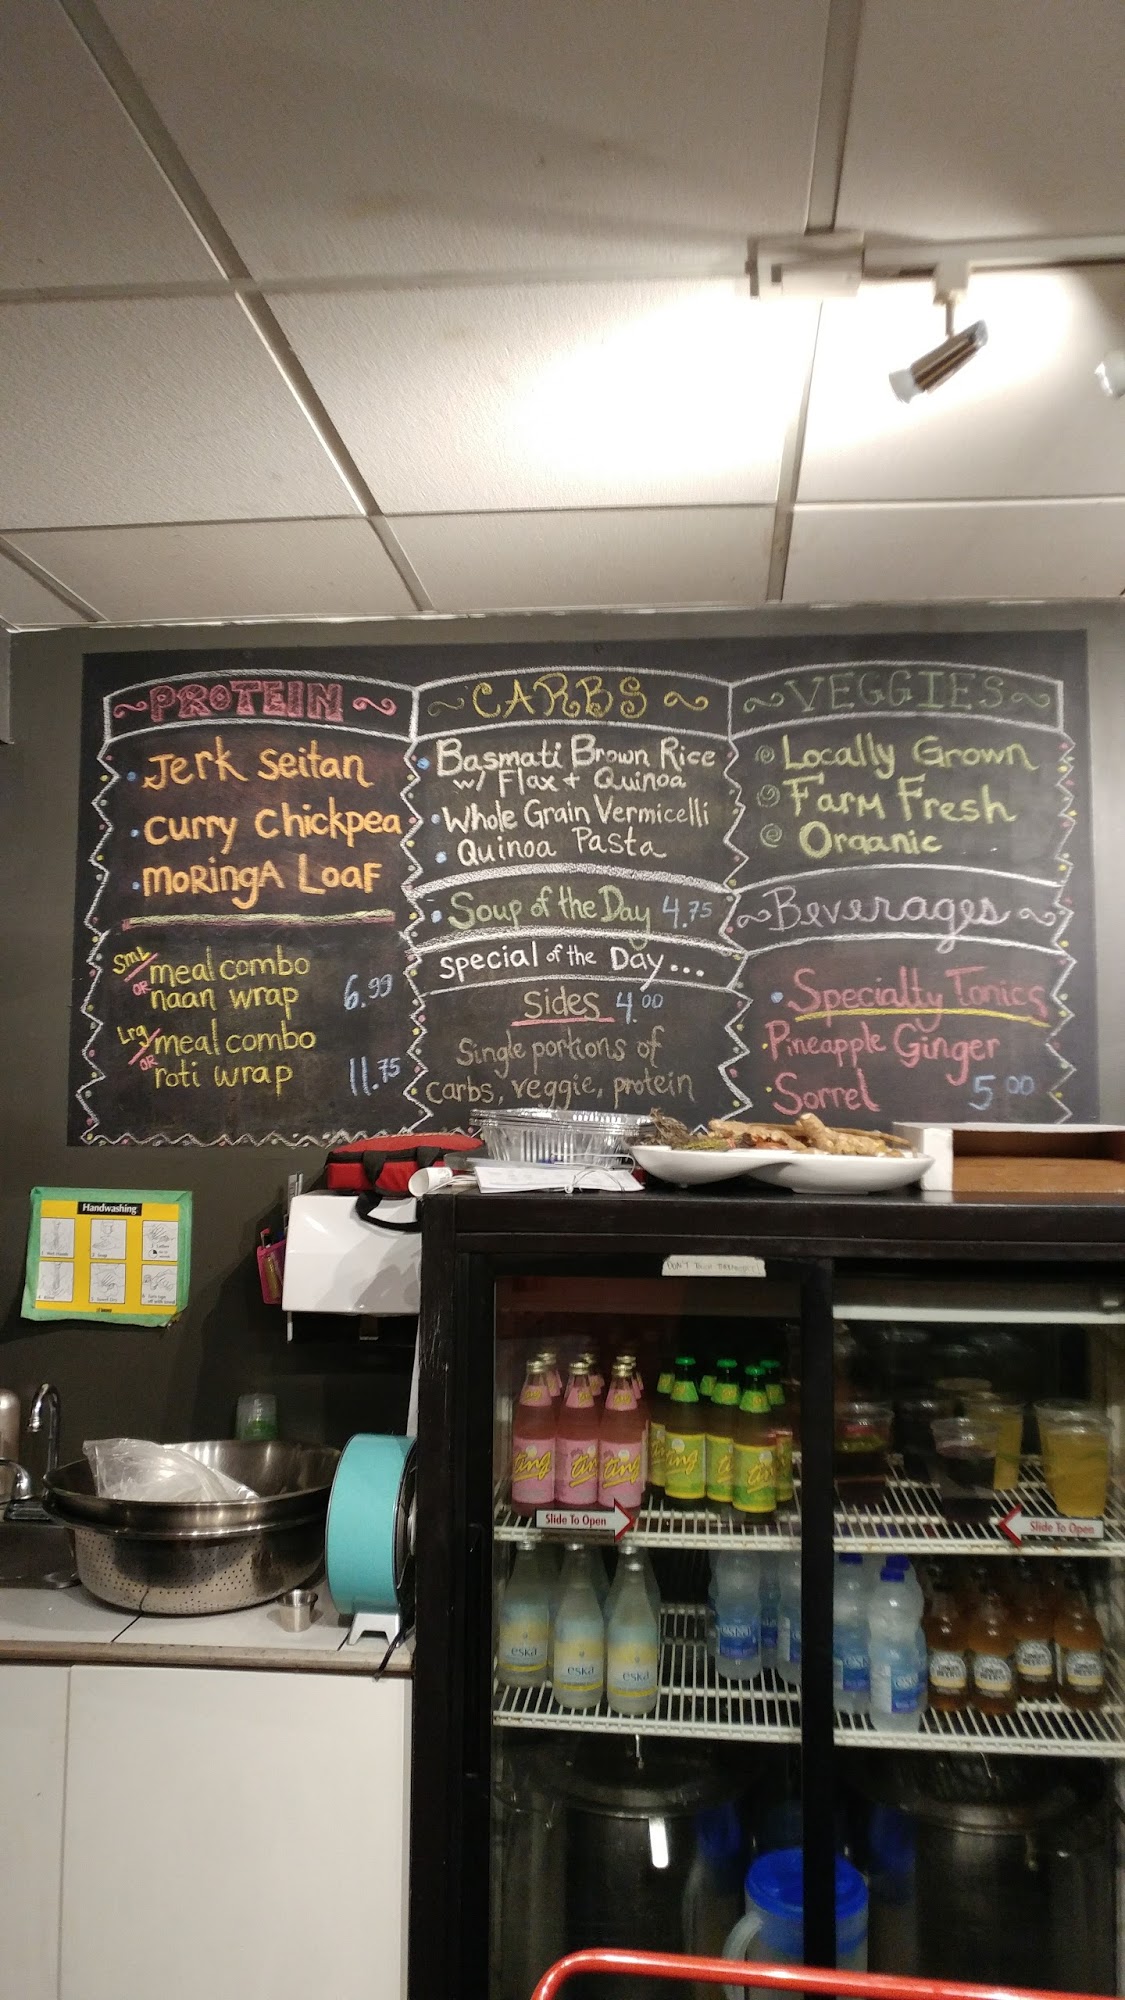 PROTEIN
Jerk Seitan
Curry Chickpea
Moringa Loaf
SmL meal combo
OR naan wrap 6.99
Lrg meal combo
OR roti wrap 11.75
CARBS
Basmati Brown Rice
w/ Flax + Quinoa
Whole Grain Vermicelli
Quinoa Pasta
Soup of the Day 4.75
Special of the Day...
Sides 4.00
Single portions of
carbs, veggie, protein
VEGGIES
Locally Grown
Farm Fresh
Organic
Beverages
Specialty Tonics
Pineapple Ginger
Sorrel 5.00
Handwashing
Ting
Ting
Ting
Ting
Slide To Open
Slide To Open
eska
eska
eska
eska